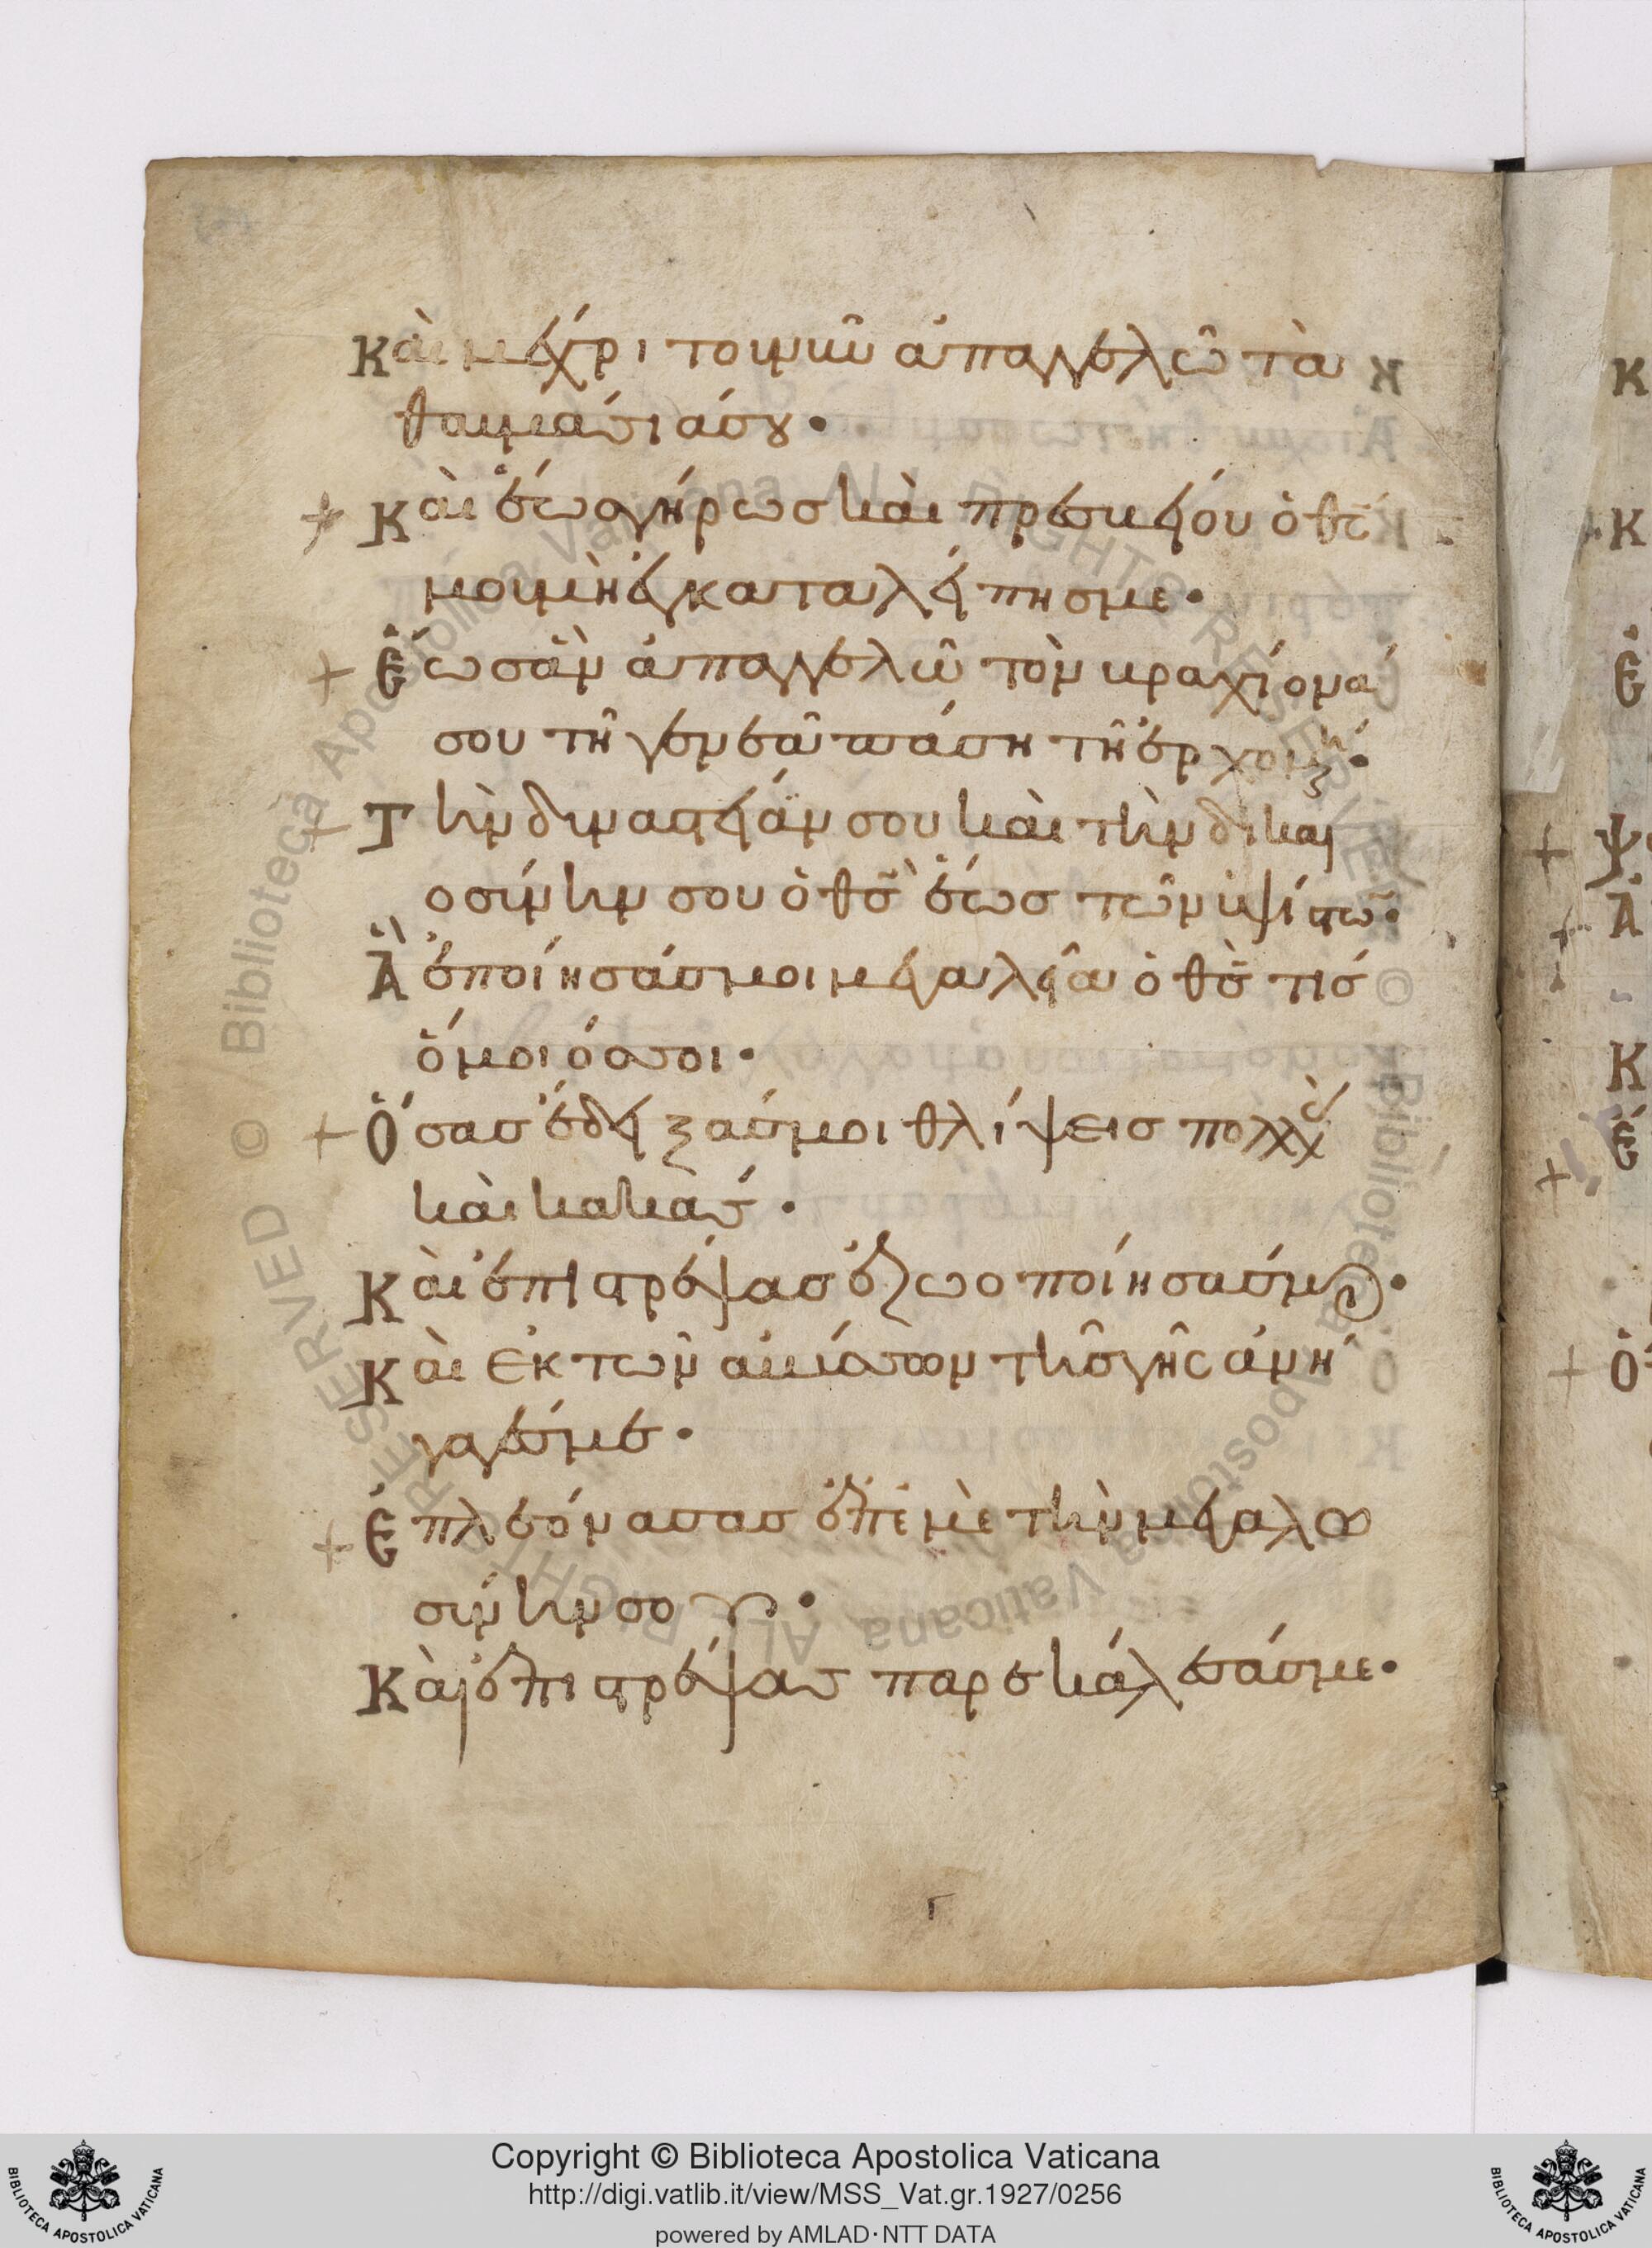 Καὶ μέχρι τοῦ νῦν ἀπαγγελῶ τὰ
θαυμάσιά σου·
Καὶ ἕως γήρως καὶ πρεσβείου ὁ θς
μου μὴ ἐγκαταλείπης με·
Ἕως ἂν ἀπαγγελῶ τὸν βραχίονά
σου τῆ γενεᾶ πάση τῆ ἐρχομένη·
Τὴν δυναστείαν σου καὶ τὴν δικαι
οσύνην σου ὁ θς ἕως τῶν ὑψίστων·
Ἃ ἐποίησάς μοι μεγαλεῖα ὁ θς τίς
ὅμοιός σοι·
Ὅσας ἔδειξάς μοι θλίψεις πολλὰς
καὶ κακάς·
Καὶ ἐπιστρέψας ἐζωοποίησάς με·
Καὶ ἐκ τῶν ἀβύσσων τῆς γῆς ἀνή
γαγές με·
Ἐπλεόνασας ἐπ' ἐμὲ τὴν μεγαλω
σύνην σου·
Καὶ ἐπιστρέψας παρεκάλεσάς με·
Copyright © Biblioteca Apostolica Vaticana
http://digi.vatlib.it/view/MSS_Vat.gr.1927/0256
powered by AMLAD·NTT DATA
BIBLIOTECA APOSTOLICA VATICANA
BIBLIOTECA APOSTOLICA VATICANA